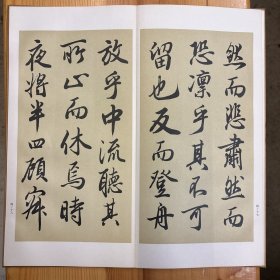 然而悲肅然而
恐凛乎其不可
留也反而登舟
放乎中流聽其
所止而休焉時
夜將半四顧寂